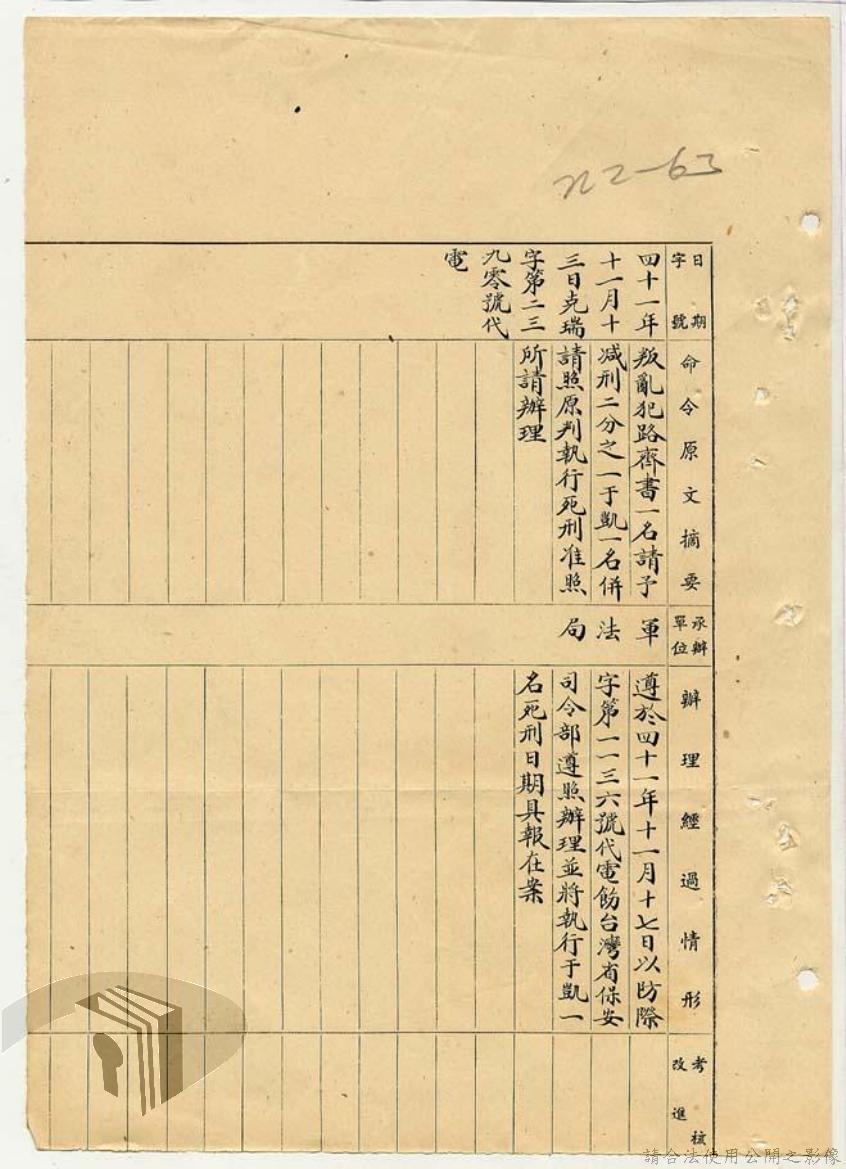 N2-63
日期
字號
命令原文摘要
承辦
單位
辦理經過情形
考核
改進
四十一年
十一月十
三日克瑞
字第二三
九零號代
電
叛亂犯路齊書一名請予
減刑二分之一于凱一名併
請照原判執行死刑准照
所請辦理
軍
法
局
遵於四十一年十一月十七日以防際
字第一一三六號代電飭台灣省保安
司令部遵照辦理並將執行于凱一
名死刑日期具報在案
請合法使用公開之影像